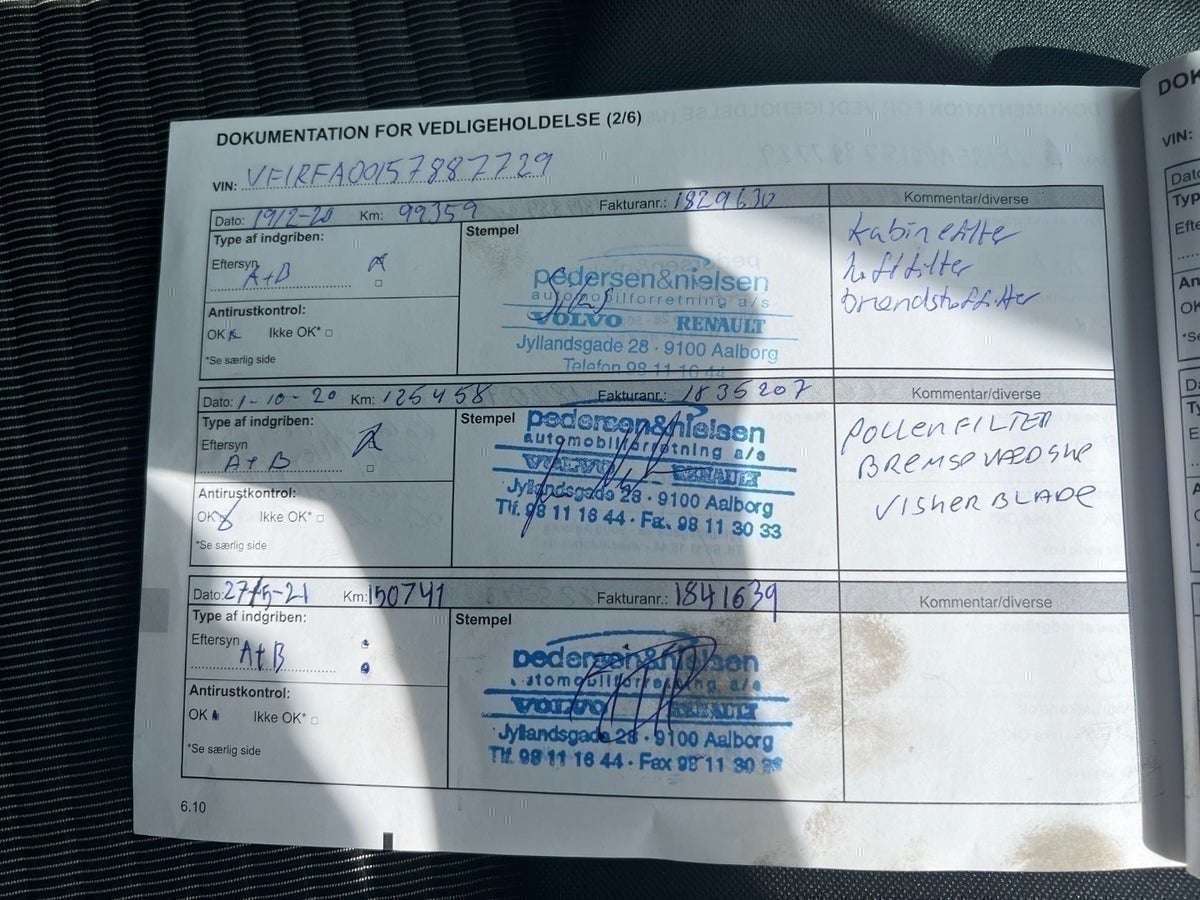 DOKUMENTATION FOR VEDLIGEHOLDELSE (2/6)
VIN: VF1RFA00157887729
Dato: 19/2-20 Km: 99359 Fakturanr.: 1829630 Kommentar/diverse
Type af indgriben:
Eftersyn A+B
Antirustkontrol:
OK Ikke OK*
*Se særlig side
Stempel
pedersen&nielsen
automobilforretning a/s
VOLVO RENAULT
Jyllandsgade 28 · 9100 Aalborg
Telefon 98 11 16 44
kabinefilter
luftfilter
brændstoffilter
Dato: 1-10-20 Km: 125458 Fakturanr.: 1835207 Kommentar/diverse
Type af indgriben:
Eftersyn A+B
Antirustkontrol:
OK Ikke OK*
*Se særlig side
Stempel
pedersen&nielsen
automobilforretning a/s
VOLVO RENAULT
Jyllandsgade 28 · 9100 Aalborg
Tlf. 98 11 16 44 · Fax 98 11 30 33
POLLENFILTER
BREMSEVÆDSKE
VISKERBLADE
Dato: 27/5-21 Km: 150741 Fakturanr.: 1841639 Kommentar/diverse
Type af indgriben:
Eftersyn A+B
Antirustkontrol:
OK Ikke OK*
*Se særlig side
Stempel
pedersen&nielsen
automobilforretning a/s
VOLVO RENAULT
Jyllandsgade 28 · 9100 Aalborg
Tlf. 98 11 16 44 · Fax 98 11 30
6.10
VIN: